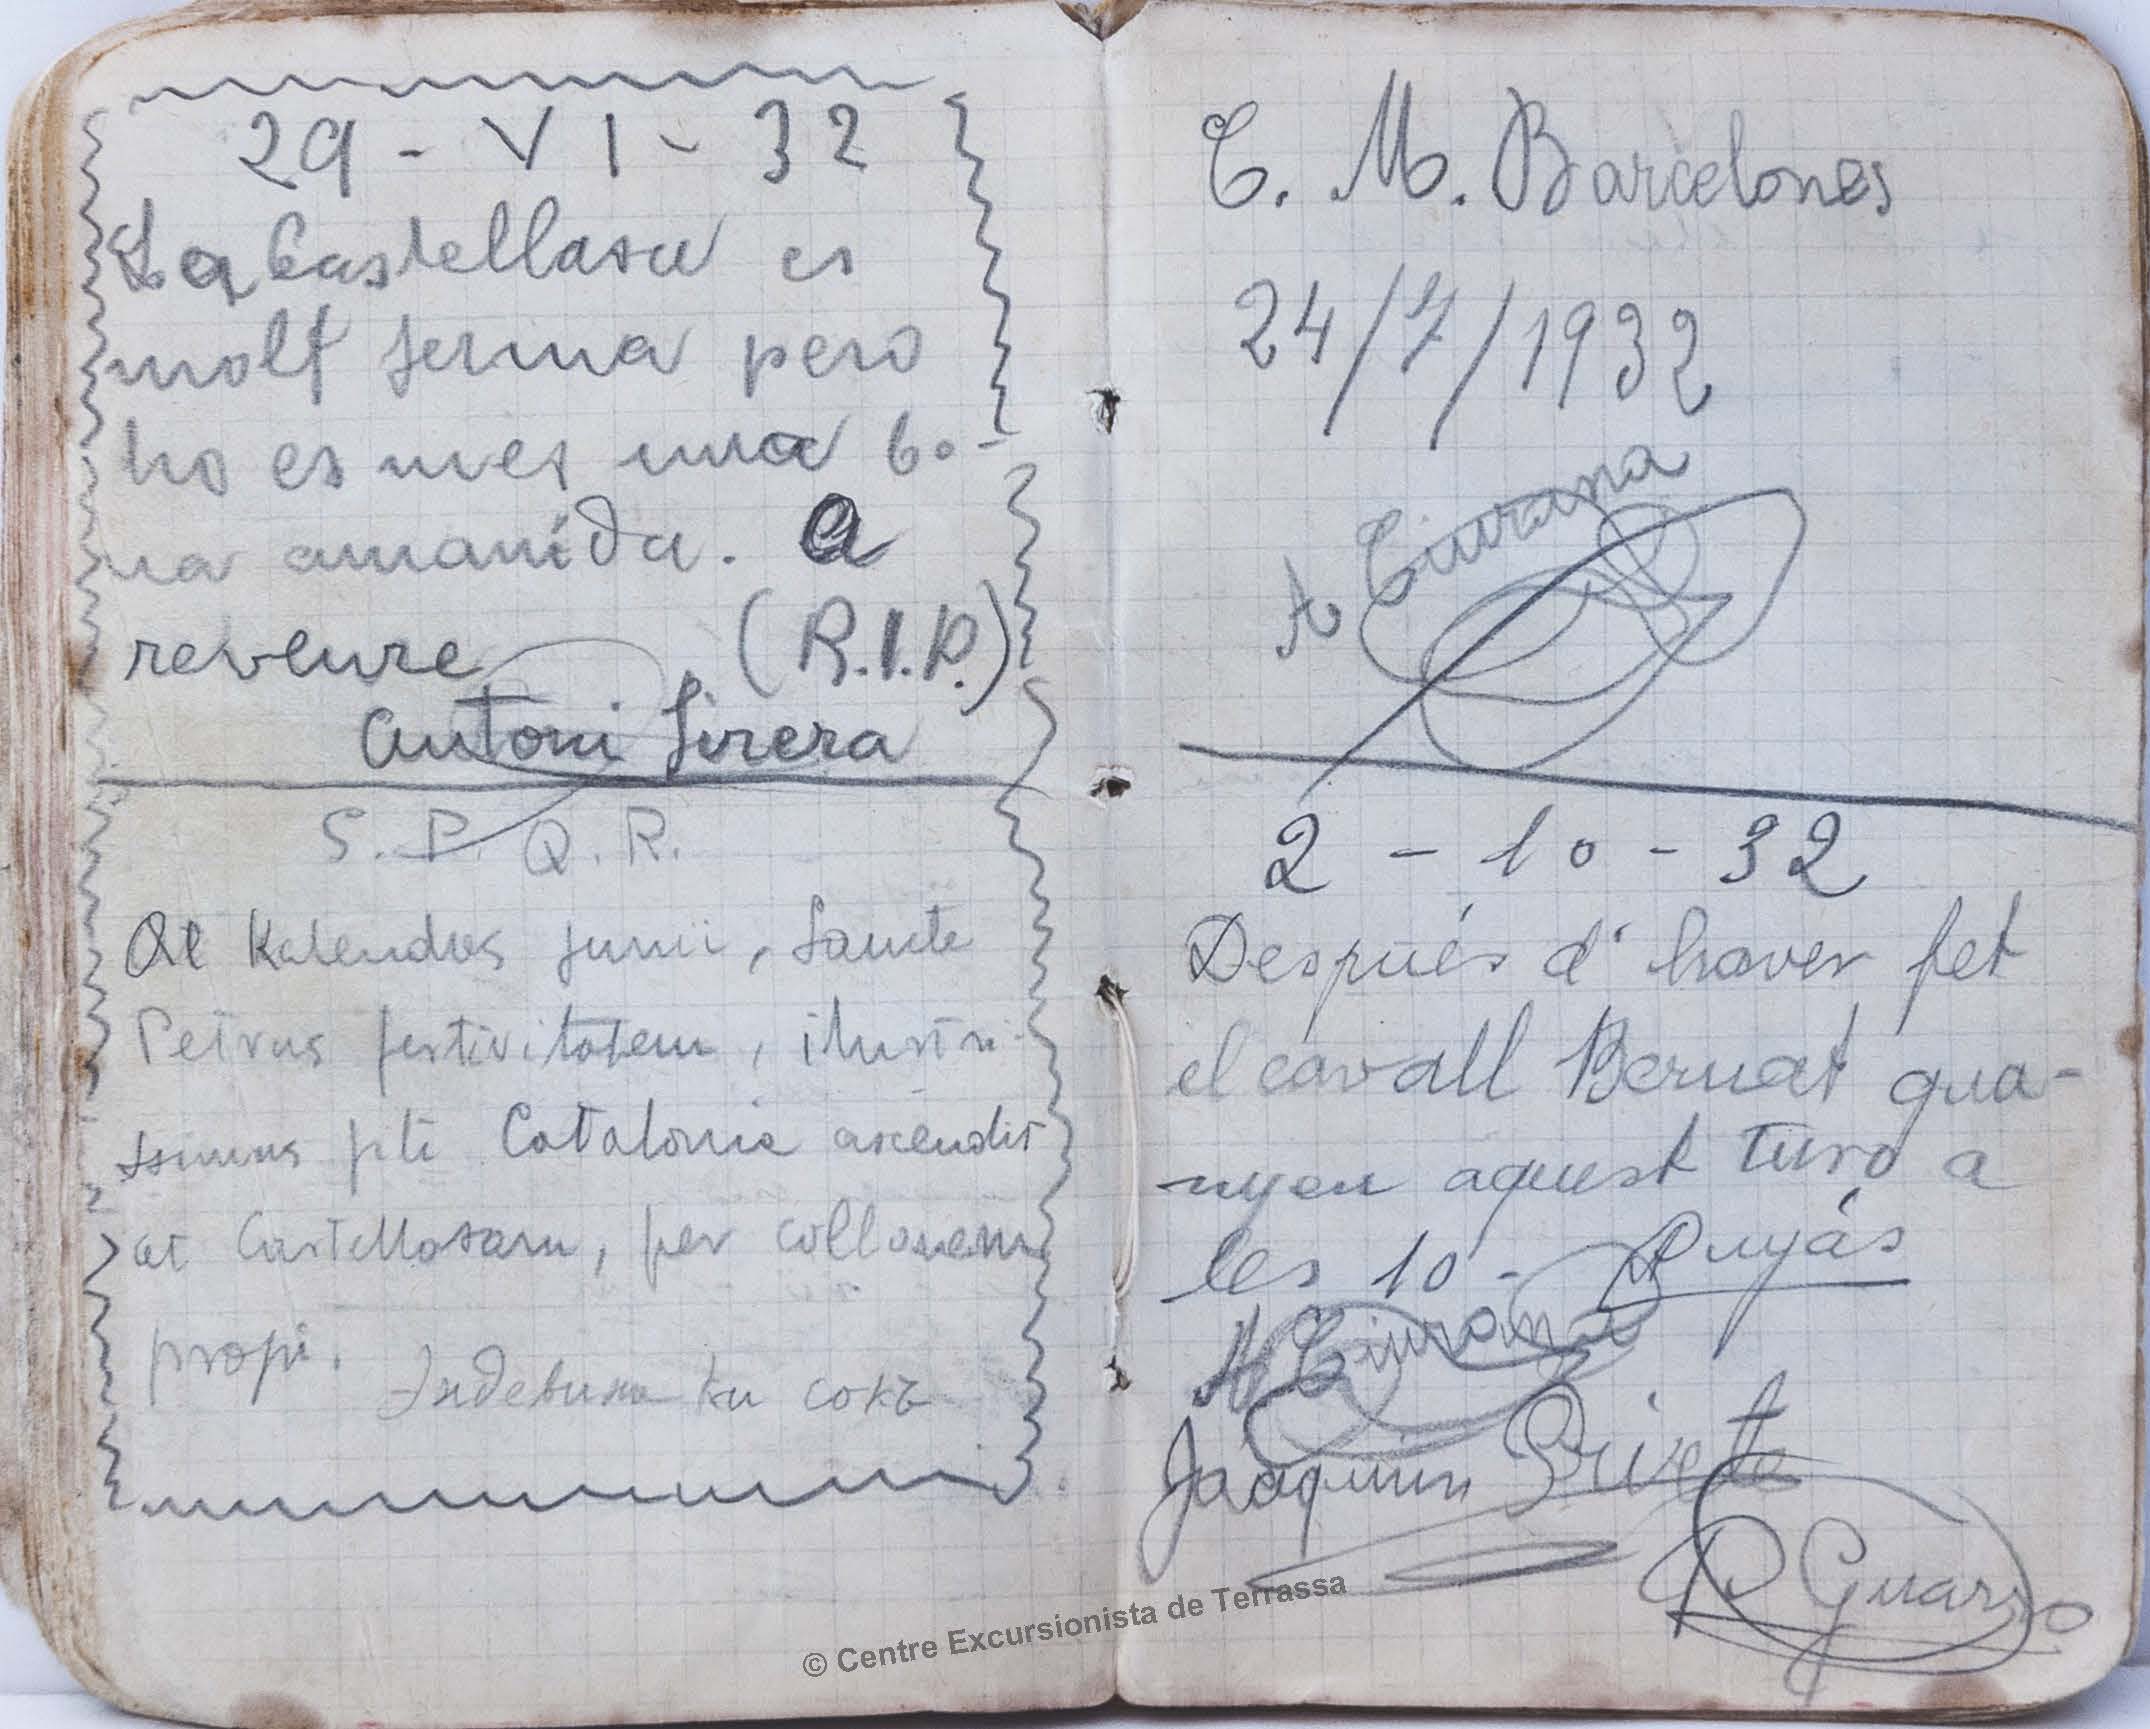 29 - VI - 32
La Castellasa es
molt ferma pero
ho es mes una bo-
na amanida. a
reveure (R.I.P.)
Antoni Sirera
S. P. Q. R.
Kalendas junii, Sancte
Petrus festivitatem, ilustri-
ssimus Catalonia ascendit
at Castellasam, per collonem
propi.
C. M. Barcelones
24/7/1932
A Ciurana
2 - 10 - 32
Después d'haver fet
el cavall Bernat gua-
nyen aquest turo a
les 10 - Puyás
A Ciurana
Joaquim
R Guar
© Centre Excursionista de Terrassa